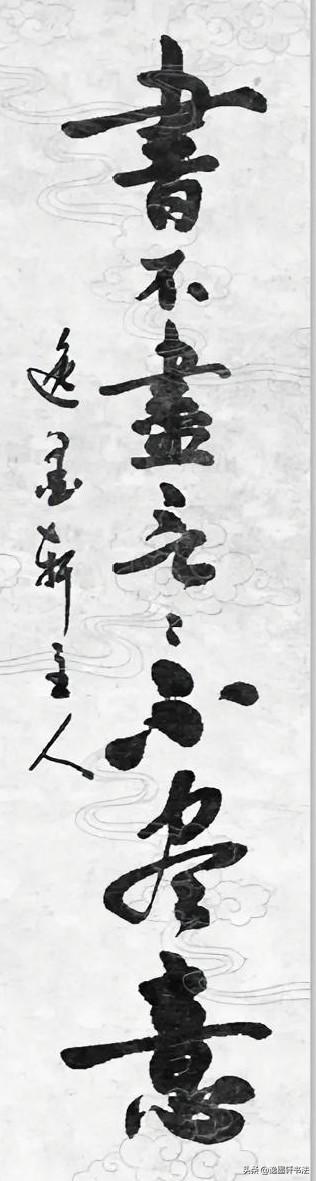 書不盡言〻不尽意
逸墨轩主人
头条@逸墨轩书法